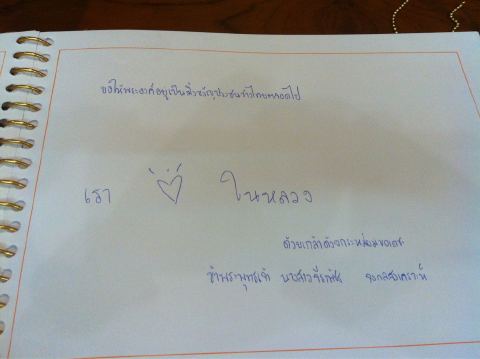 ขอให้พระองค์อยู่เป็นมิ่งขวัญประชาชนชาวไทยตลอดไป
เรา ในหลวง
ด้วยเกล้าด้วยกระหม่อมขอเดชะ
ข้าพระพุทธเจ้า นางสาว